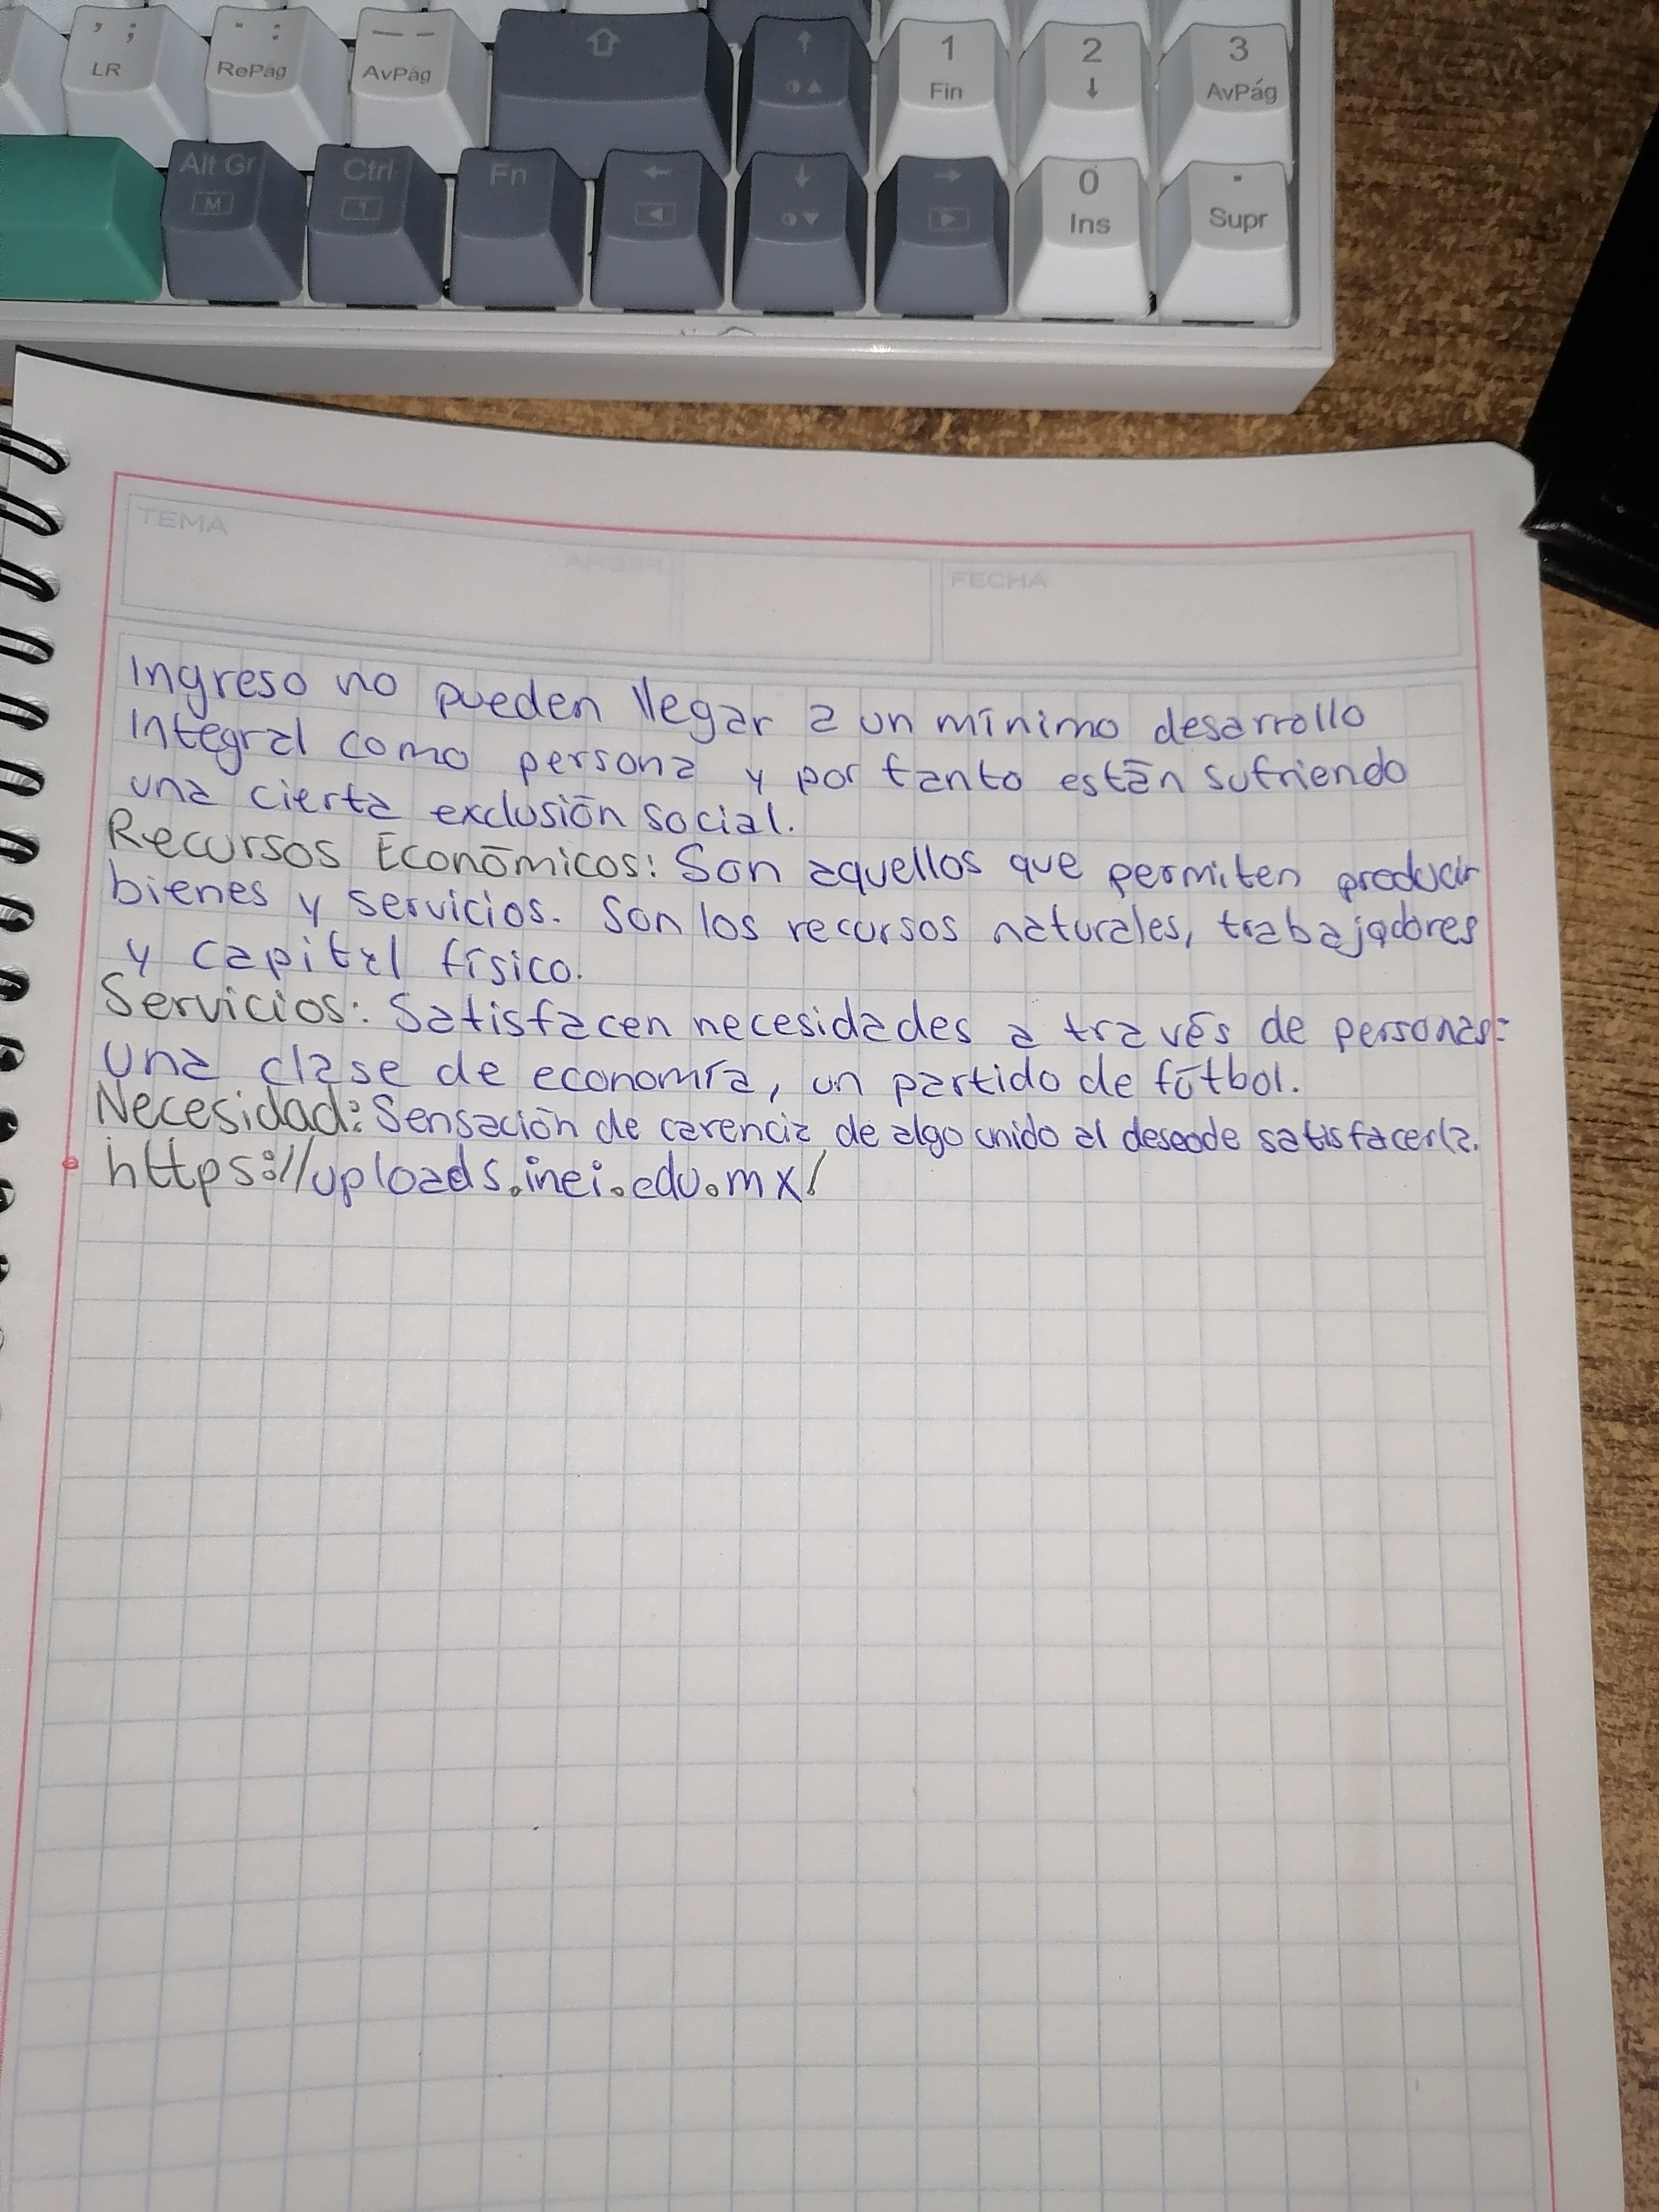 , ; LR
. : RePág
— - AvPág
1 Fin
2
3 AvPág
Alt Gr M
Ctrl 1
Fn
0 Ins
. Supr
TEMA
FECHA
Ingreso no pueden llegar a un mínimo desarrollo
Integral como persona y por tanto están sufriendo
una cierta exclusión social.
Recursos Económicos: Son aquellos que permiten producir
bienes y servicios. Son los recursos naturales, trabajadores
y capital físico.
Servicios: Satisfacen necesidades a través de personas:
Una clase de economía, un partido de fútbol.
Necesidad: Sensación de carencia de algo unido al deseode satisfacerla.
https://uploads.inei.edu.mx/